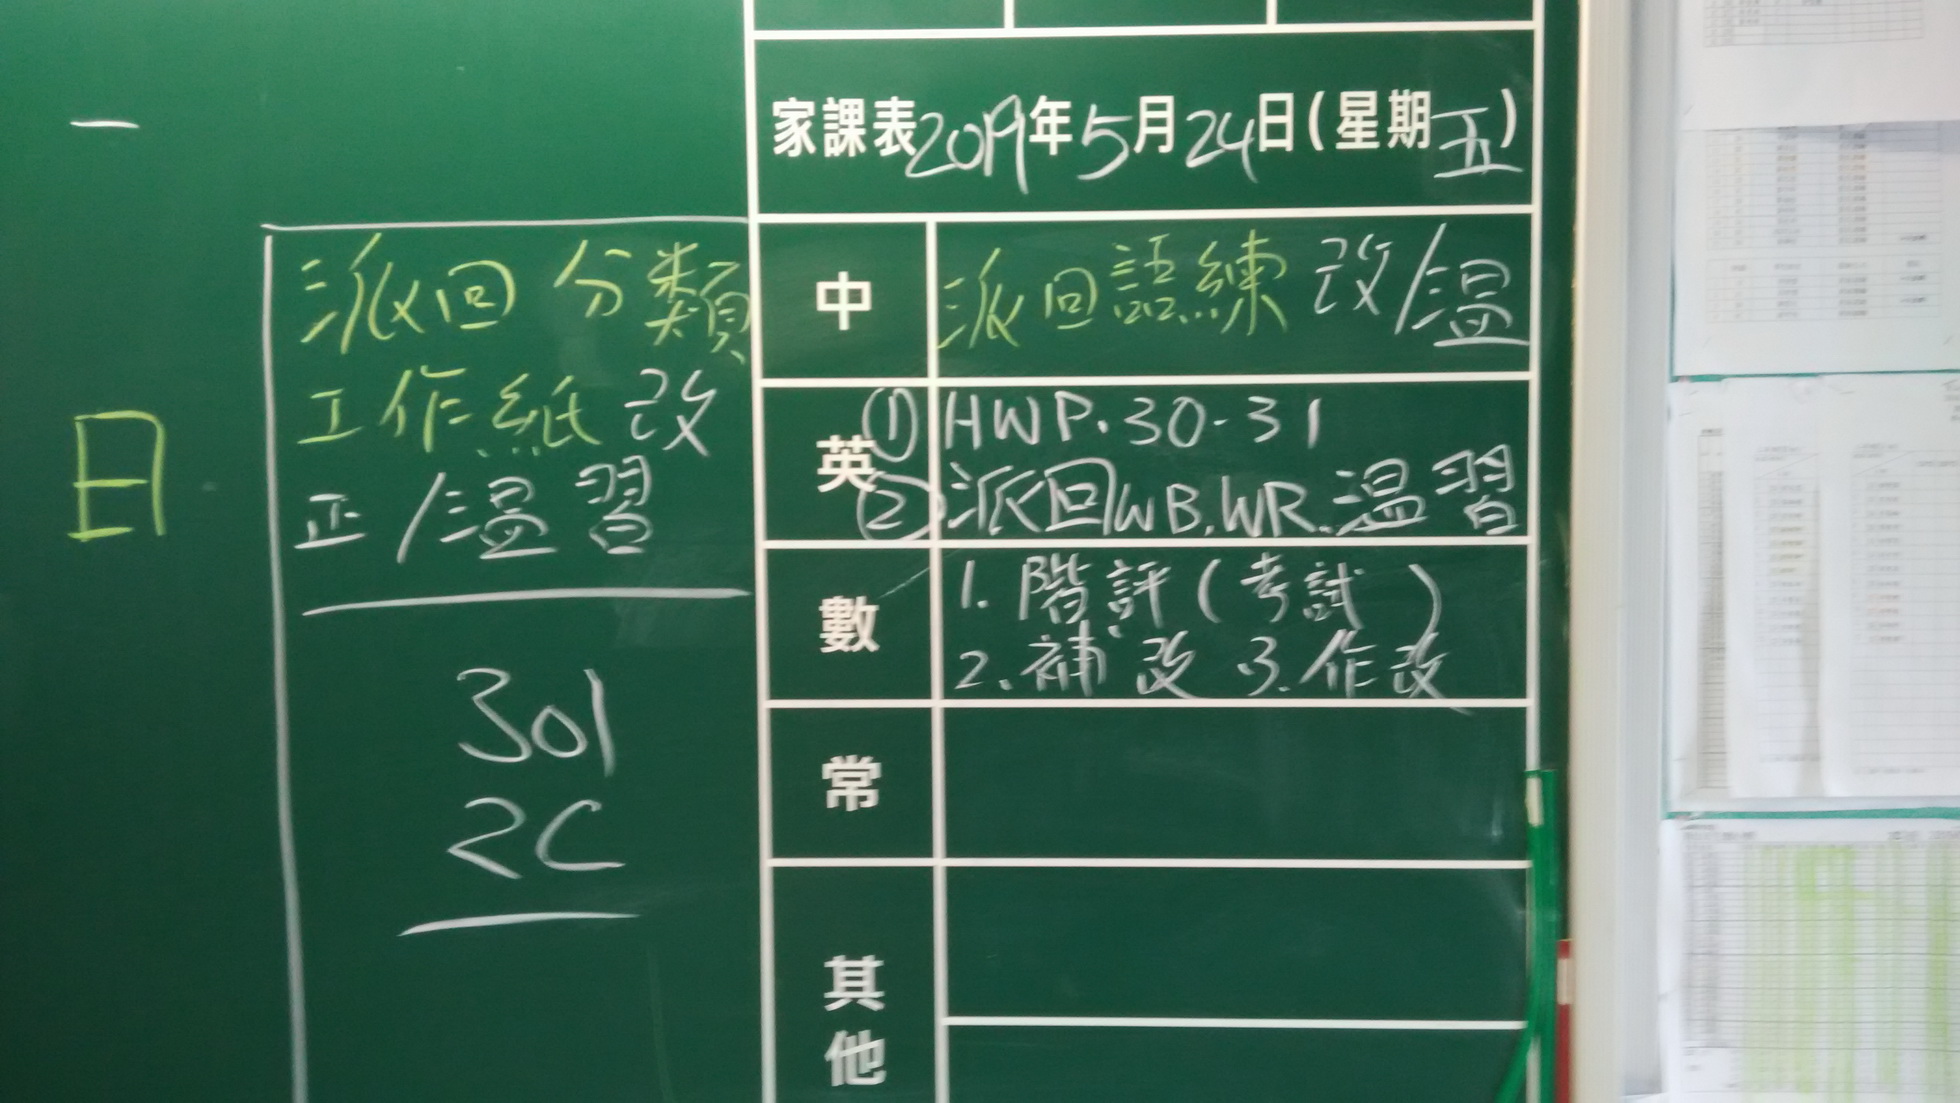 家課表2019年5月24日(星期五)
日
派回分類
工作紙改
正/溫習
301
2C
中
派回語練 改/溫
英
① HWP.30-31
② 派回WB,WR.溫習
數
1. 階評(考試)
2. 補改 3. 作改
常
其他